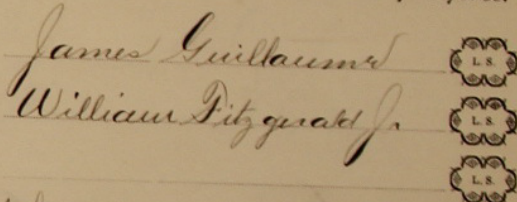 James Guillaume L. S.
William Fitzgerald Jr L. S.
L. S.